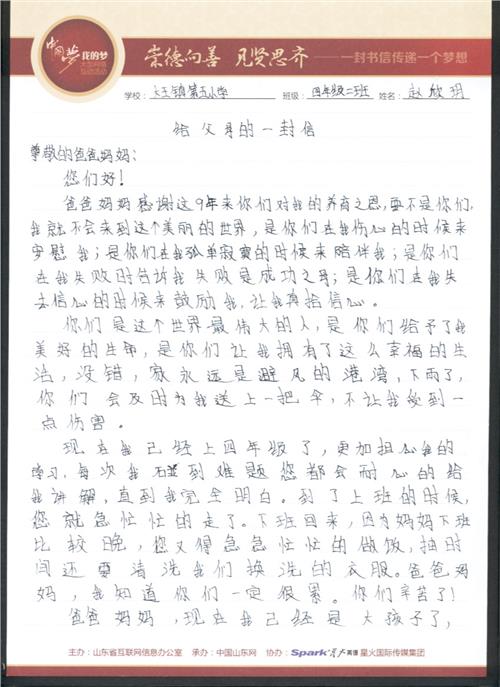 中国梦 我的梦
大型网络
互动活动
崇德向善 见贤思齐 ——一封书信传递一个梦想
学校：大王镇第五小学 班级：四年级二班 姓名：赵欣玥
给父母的一封信
尊敬的爸爸妈妈：
您们好！
爸爸妈妈感谢这9年来你们对我的养育之恩，要不是你们，
我就不会来到这个美丽的世界，是你们在我伤心的时候来
安慰我；是你们在我孤单寂寞的时候来陪伴我；是你们
在我失败时告诉我失败是成功之母；是你们在我失
去信心的时候来鼓励我，让我再拾信心。
你们是这个世界最伟大的人，是你们给予了我
美好的生命，是你们让我拥有了这么幸福的生
活，没错，家永远是避风的港湾，下雨了，
你们会及时为我送上一把伞，不让我受到一
点伤害。
现在我已经上四年级了，更加担心我的
学习，每次我碰到难题您都会耐心的给
我讲解，直到我完全明白。到了上班的时候，
您就急忙忙的走了。下班回来，因为妈妈下班
比较晚，您又得急急忙忙的做饭，抽时
间还要清洗我们换洗的衣服。爸爸妈
妈，我知道你们一定很累。你们辛苦了！
爸爸妈妈，现在我已经是大孩子了，
主办：山东省互联网信息办公室 承办：中国山东网 协办：Spark 星火英语 星火国际传媒集团